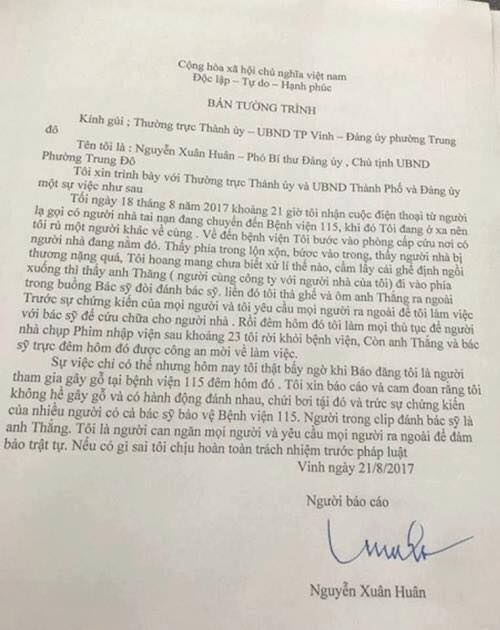 Cộng hòa xã hội chủ nghĩa việt nam
Độc lập – Tự do – Hạnh phúc
BẢN TƯỜNG TRÌNH
Kính gủi ; Thường trực Thành ủy – UBND TP Vinh – Đảng ủy phường Trung
đô
Tên tôi là : Nguyễn Xuân Huân – Phó Bí thư Đảng ủy , Chủ tịnh UBND
Phường Trung Đô
Tôi xin trình bày với Thường trực Thành ủy và UBND Thành Phố và Đảng ủy
một sự việc như sau
Tối ngày 18 tháng 8 năm 2017 khoảng 21 giờ tôi nhận cuộc điện thoại từ người
lạ gọi có người nhà tai nạn đang chuyển đến Bệnh viện 115, khi đó Tôi đang ở xa nên
tôi rủ một người khác về cùng . Về đến bệnh viện Tôi bước vào phòng cấp cứu nơi có
người nhà đang nằm đó. Thấy phía trong lộn xộn, bước vào trong, thấy người nhà bị
thương nặng quá, Tôi hoang mang chưa biết xử lí thế nào, cầm lấy cái ghế định ngồi
xuống thì thấy anh Thắng ( người cùng công ty với người nhà của tôi) đi vào phía
trong buồng Bác sỹ đòi đánh bác sỹ. liền đó tôi thả ghế và ôm anh Thắng ra ngoài
Trước sự chứng kiến của mọi người và tôi yêu cầu mọi người ra ngoài để tôi làm việc
với bác sỹ để cứu chữa cho người nhà . Rồi đêm hôm đó tôi làm mọi thủ tục để người
nhà chụp Phim nhập viện sau khoảng 23 tôi rời khỏi bệnh viện, Còn anh Thắng và bác
sỹ trực đêm hôm đó được công an mời về làm việc.
Sự việc chỉ có thế nhưng hôm nay tôi thật bấy ngờ khi Báo đăng tôi là người
tham gia gây gỗ tại bệnh viện 115 đêm hôm đó . Tôi xin báo cáo và cam đoan rằng tôi
không hề gây gỗ và có hành động đánh nhau, chửi bơi tại đó và trức sự chứng kiến
của nhiều người có cả bác sỹ bảo vệ Bệnh viện 115. Người trong clip đánh bác sỹ là
anh Thắng. Tôi là người can ngăn mọi người và yêu cầu mọi người ra ngoài để đảm
bảo trật tự. Nếu có gì sai tôi chịu hoàn toàn trách nhiệm trước pháp luật
Vinh ngày 21/8/2017
Người báo cáo
Nguyễn Xuân Huân